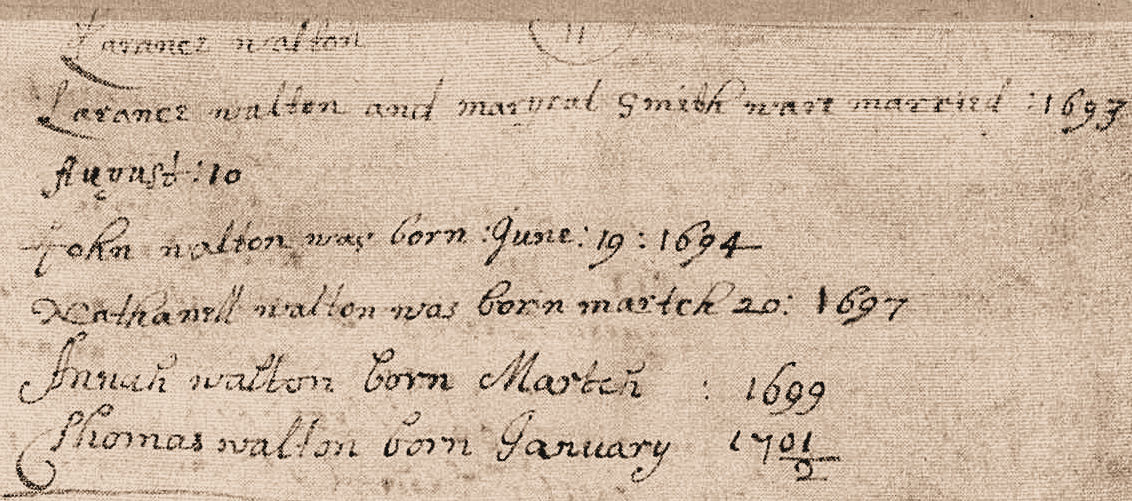 Larance walton 11
Larance walton and margreat Smith ware married : 1693
August : 10
John walton was born : June : 19 : 1694
Nathanell walton was born martch 20 : 1697
Annah walton born Martch : 1699
Thomas walton born January 1701/2